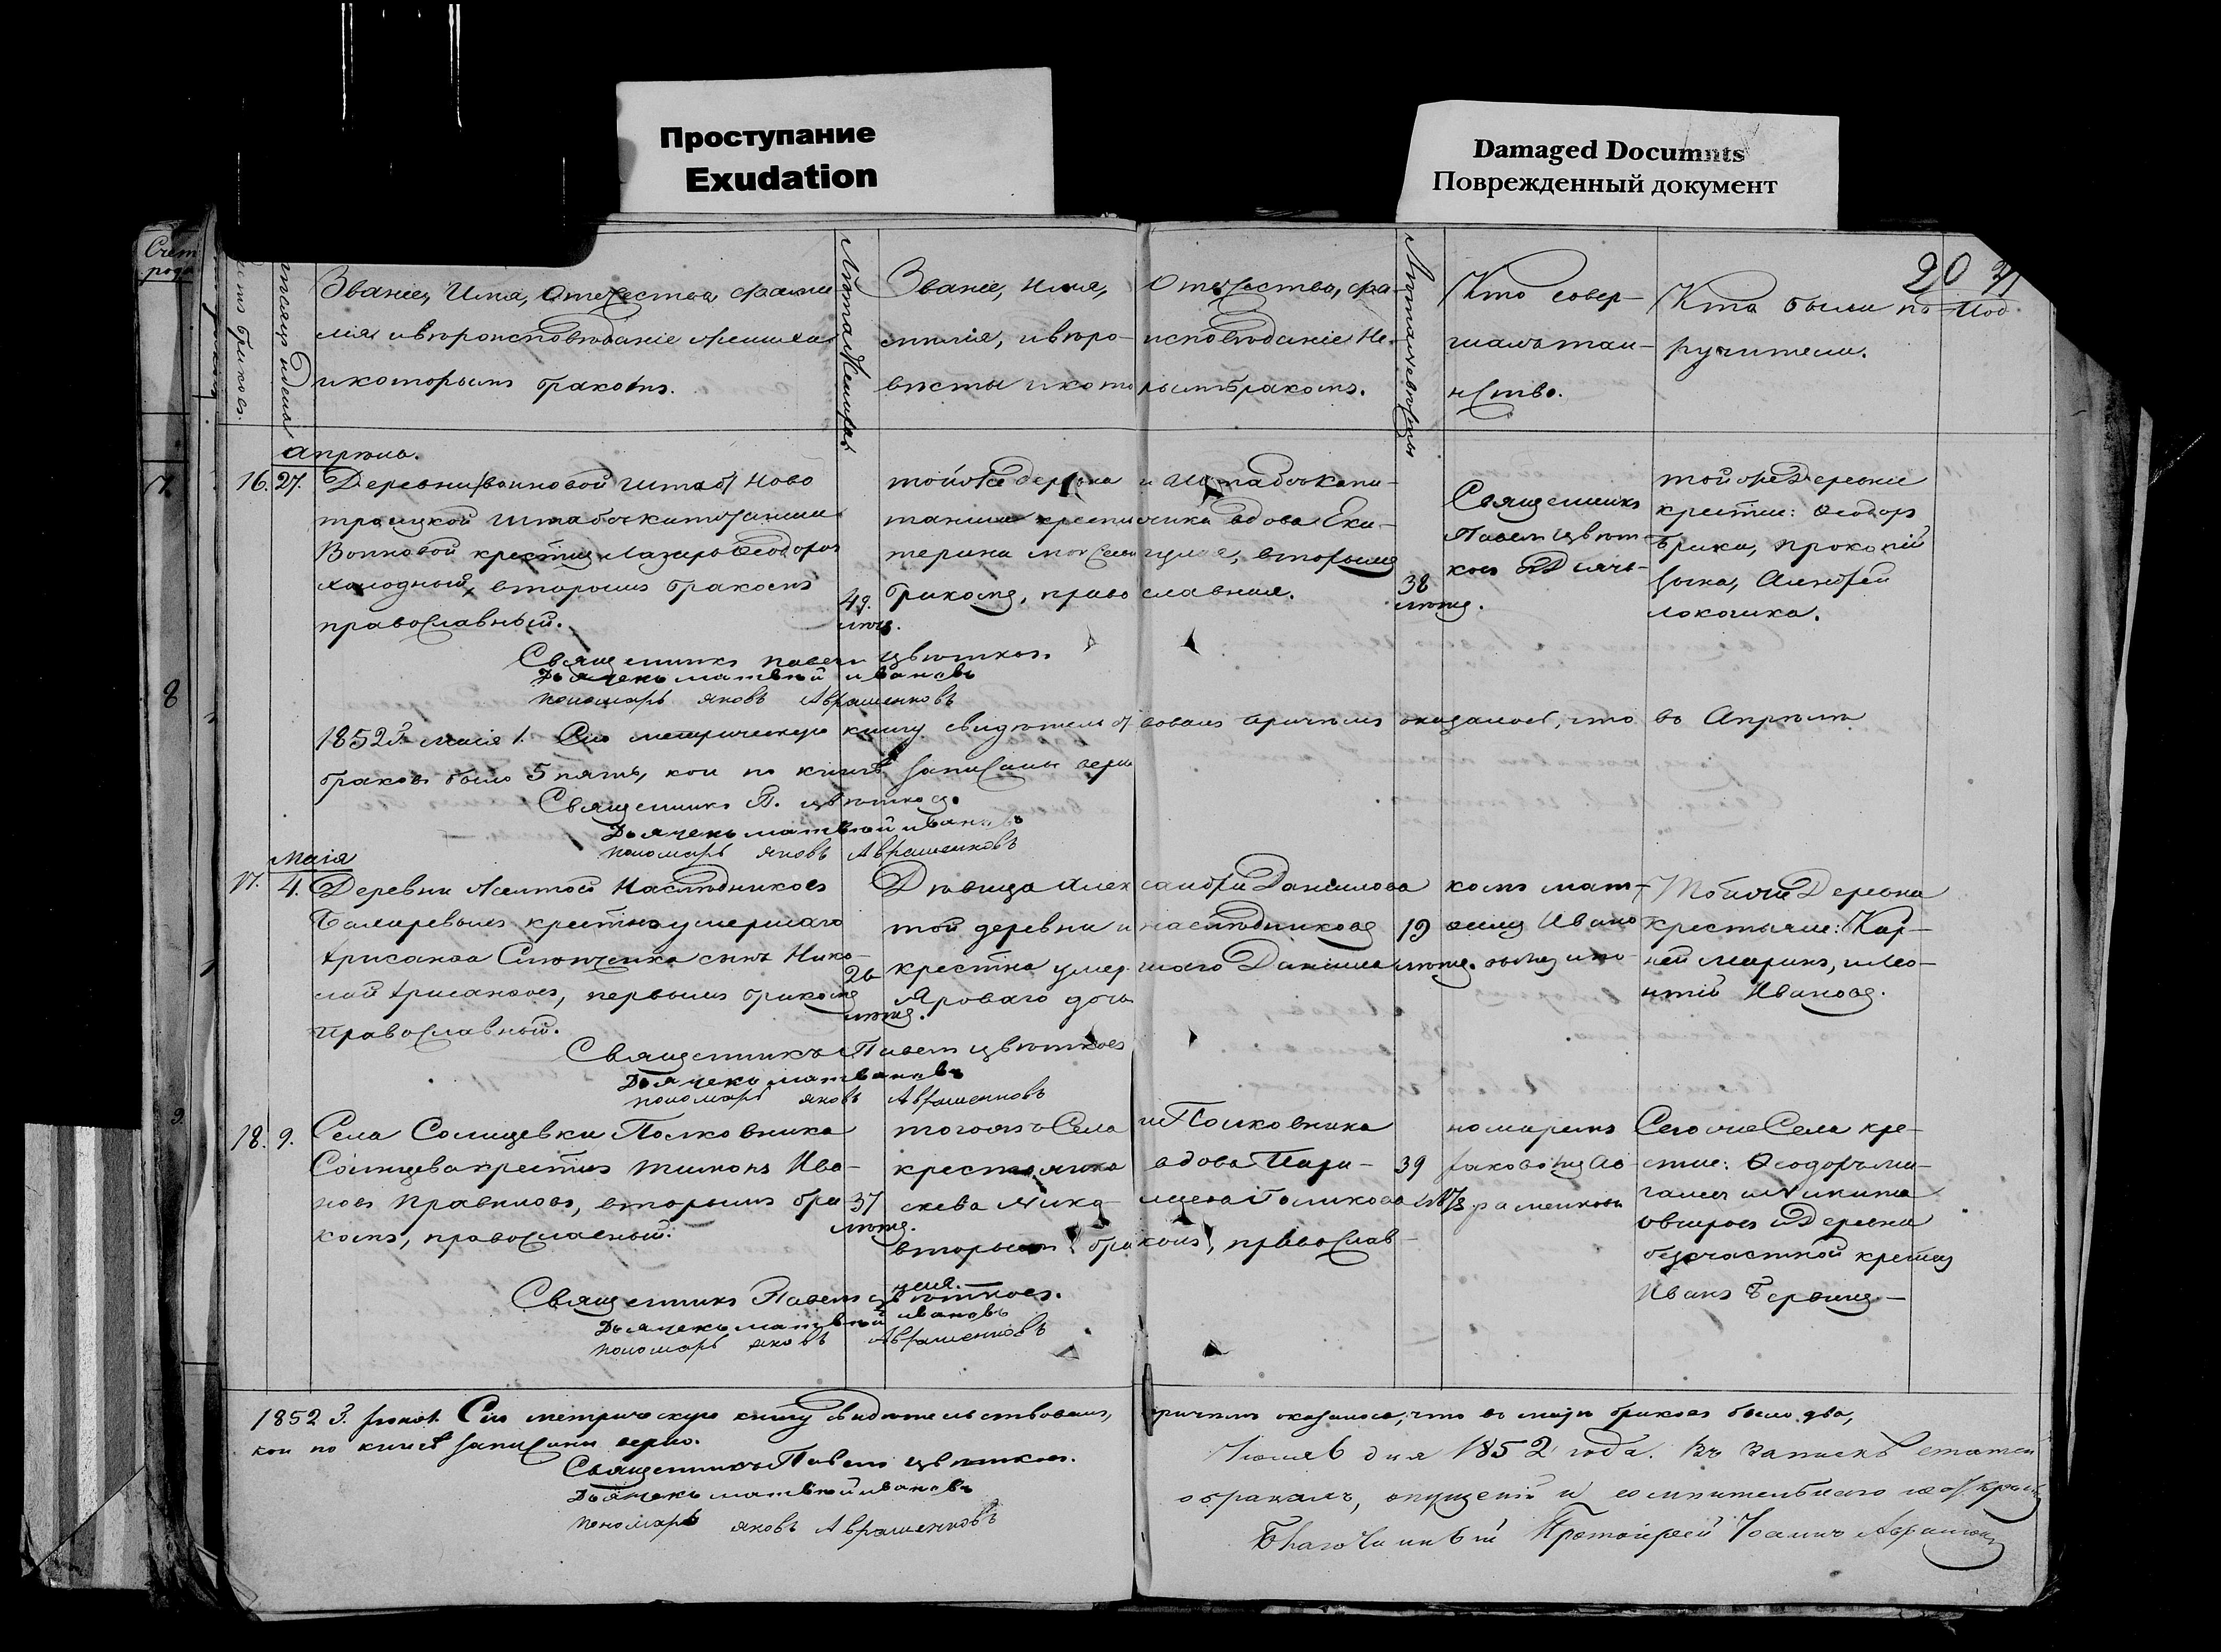 Проступание
Exudation
Damaged Documnts
Поврежденный документ
Счет
рода
20
Званіе, Имя, Отечество, фами
лія и вѣроисповѣданіе Жениха
и которымъ бракомъ.
Лѣта Жениха
Званіе, имя, Отечество, фа-
милія, и вѣро-исповѣданіе Не-
вѣсты и которымъ бракомъ.
Лѣта невѣсты
Кто совер-
шалъ таи-
нство.
Кто были по-
ручители.
браковъ.
мѣсяцъ и день
Апрѣль.
16. 27. Деревни Ново
троицкой Штабсъ капитанши
Воиновой крестьян Лазарь Ѳеодоровъ
Холодный, вторымъ бракомъ
православный.
49.
лѣтъ.
той же деревни и Штабсъ Капи-
танши вдова Ека-
терина вторымъ
бракомъ, православная.
38
лѣтъ.
Священникъ
Павелъ Цвѣт-
ковъ съ Дьяч-
той же Деревни
крестьяне: Ѳеодоръ
Прокопій
Андрей
Священникъ Павелъ Цвѣтковъ.
Дьячекъ матвѣй ивановъ
пономарь яковъ Аврашенковъ
1852 г. маія 1. Сію метрическую книгу свидѣтельствовалъ причемъ оказалось, что въ Апрѣлѣ
браковъ было 5 пять, кои по книгѣ записаны вѣрно
Священникъ П. Цвѣтковъ.
Дьячекъ матвѣй ивановъ
пономарь яковъ Аврашенковъ
Маія
17. 4. Деревни Желтой Наслѣдниковъ
крестьян умершаго
Хрисанфа сынъ Нико-
лай Хрисанфовъ, первымъ бракомъ
Православный.
26
лѣтъ.
Дѣвица Александра Данилова
той деревни и наслѣдниковъ
крестьян умершаго Данила
Яроваго дочь
19
лѣтъ.
комъ мат-
веемъ Ивано-
вымъ и по-
Той же Деревни
крестьяне: Кор-
ней и Лео-
нтій Ивановъ.
Священникъ Павелъ Цвѣтковъ
пономарь яковъ Аврашенковъ
18. 9. Села Солнцевки Полковника
Солнцева крестьян Тихонъ Ива-
новъ вторымъ бра
комъ, православный.
37
лѣтъ.
того же Села и Полковника
вдова Пара-
скева Голикова
вторымъ бракомъ, православ-
ная.
39
лѣтъ
номаремъ
Іаковомъ Ав-
рашенковы
Сего же Села кре-
стьяне: Ѳеодоръ
Никита
и Деревни
безсчастной крестьян
Иванъ
Священникъ Павелъ Цвѣтковъ.
Дьячекъ матвѣй ивановъ
пономарь яковъ Аврашенковъ
1852 г. Сію метрическую книгу свидѣтельствовалъ, причемъ оказалось, что въ маіѣ браковъ было два,
кои по книгѣ записаны вѣрно.
Священникъ Павелъ Цвѣтковъ.
Дьячекъ матвѣй ивановъ
пономарь яковъ Аврашенковъ
Іюля 6 дня 1852 года. Въ запискѣ статей
о бракахъ, опущеній и сомнительнаго не
Благочинный Протоіерей Іоаннъ